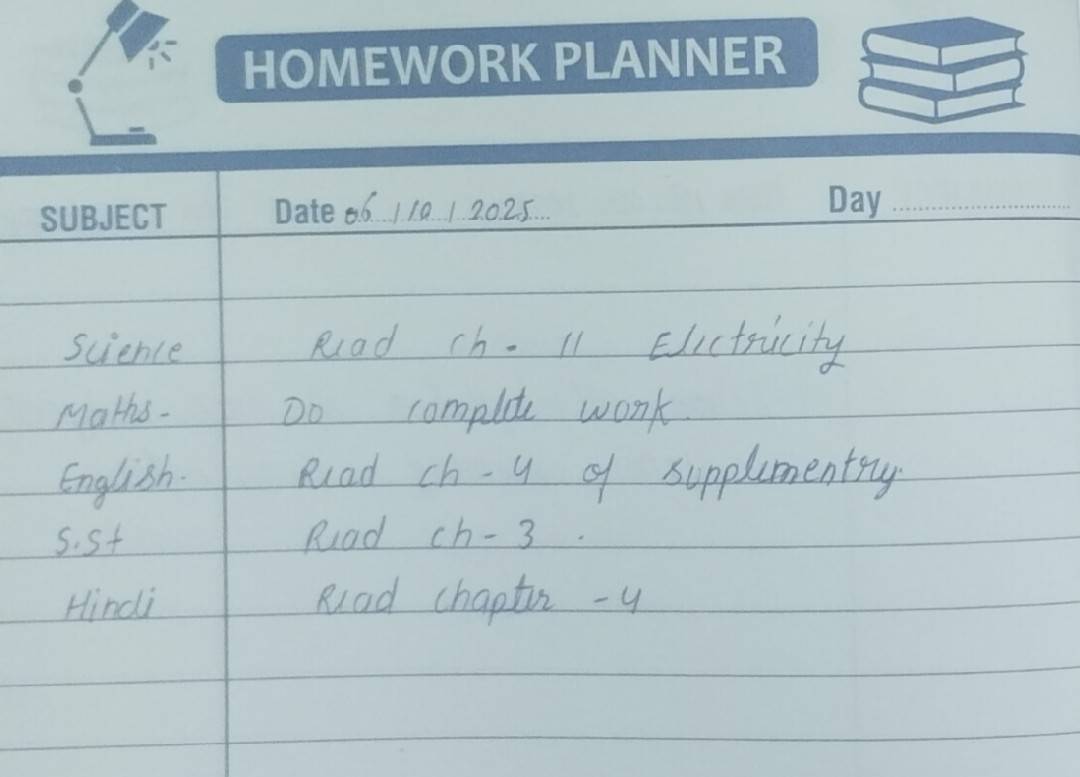 HOMEWORK PLANNER
SUBJECT Date 06/10/2025 Day
Science Read ch. 11 Electricity
Maths- Do complete work.
English. Read ch-4 of supplementry.
S.St Read ch-3.
Hindi Read chapter -4